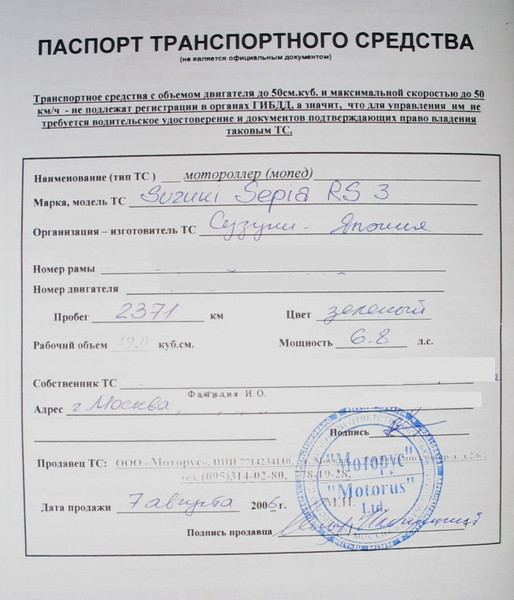 ПАСПОРТ ТРАНСПОРТНОГО СРЕДСТВА
(не является официальным документом)
Транспортное средства с объемом двигателя до 50см.куб. и максимальной скоростью до 50
км/ч - не подлежат регистрации в органах ГИБДД, а значит, что для управления им не
требуется водительское удостоверение и документов подтверждающих право владения
таковым ТС.
Наименование (тип ТС) мотороллер (мопед)
Марка, модель ТС Suzuki Sepia RS 3
Организация – изготовитель ТС Сузуки - Япония
Номер рамы
Номер двигателя
Пробег 2371 км Цвет зеленый
Рабочий объем 49,0 куб.см. Мощность 6.8 л.с.
Собственник ТС
Фамилия И.О.
Адрес г. Москва,
Подпись
Продавец ТС: ООО «Моторус», ИНН 7714234110,
тел.(095)314-02-80, 778-19-28,
"Моторус"
"Motorus"
Ltd.
Дата продажи 7 августа 2006г. М.П.
Подпись продавца